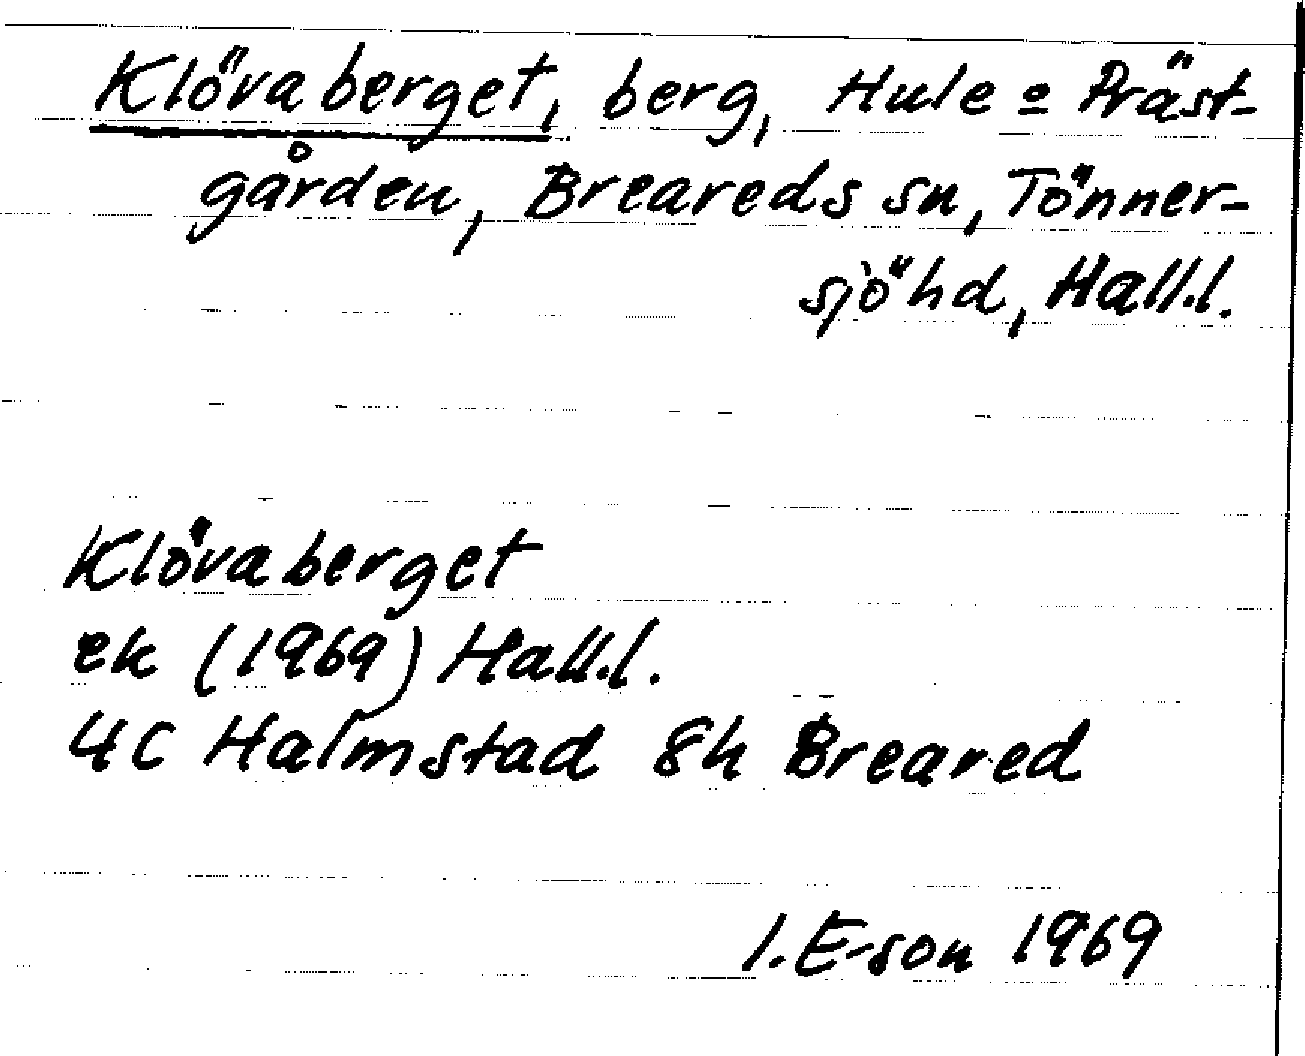 Klövaberget, berg, Hule = Präst-
gården, Breareds sn, Tönner-
sjöhd, Hall.l.
Klövaberget
ek (1969) Hall.l.
4C Halmstad 8h Breared
I. E-son 1969